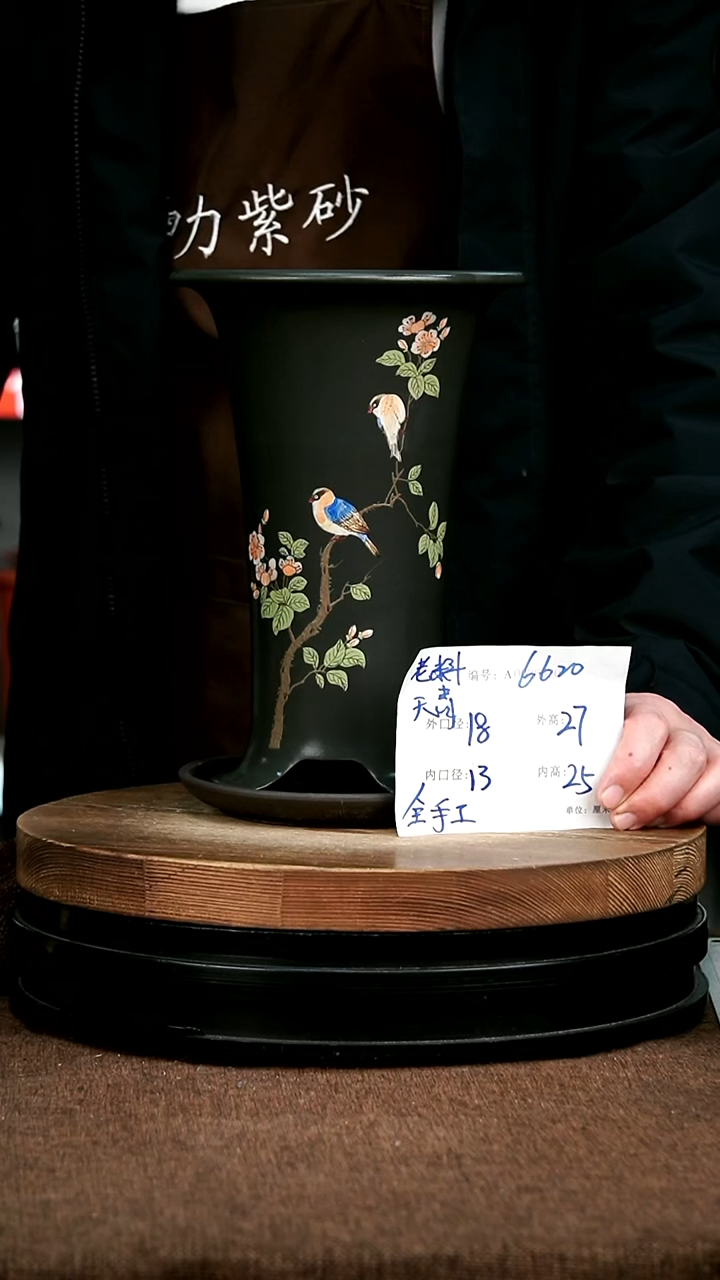 力紫砂
老料 编号：A 6620
天
外口径：18 外高：27
内口径：13 内高：25
全手工 单位：厘米